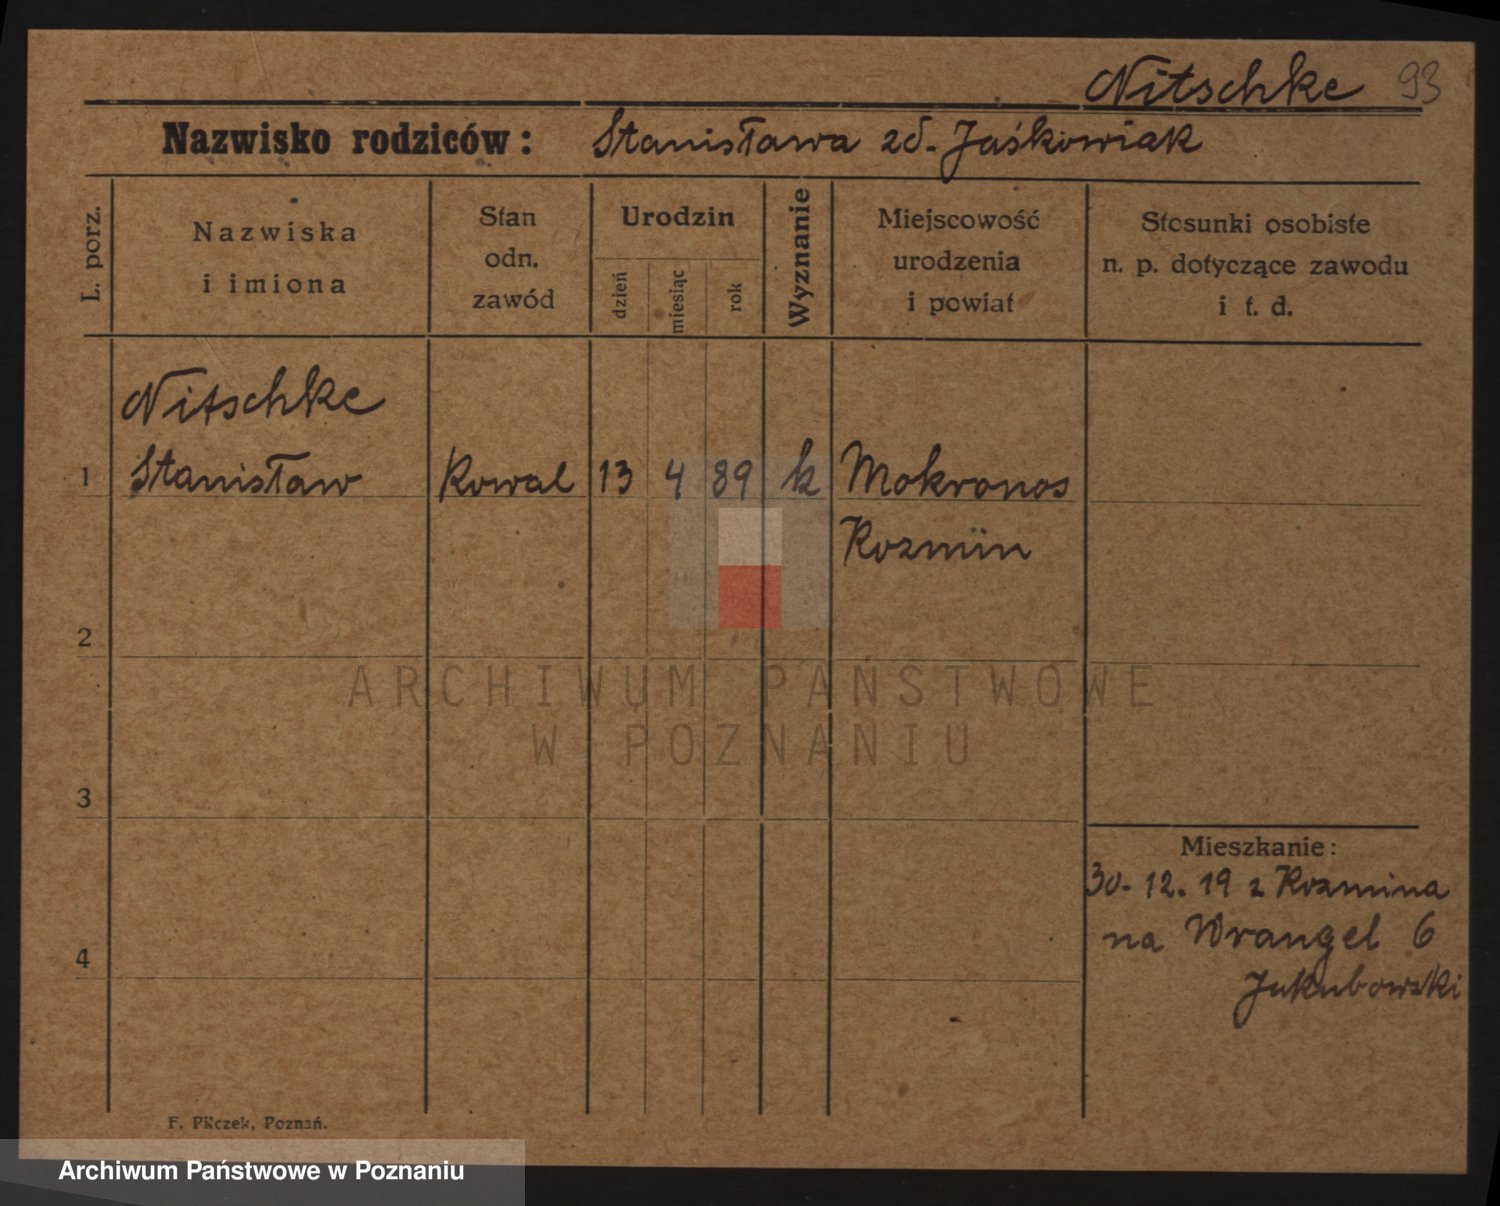 Nitschke 93
Nazwisko rodziców: Stanisława zd. Jaśkowiak
L. porz.
Nazwiska
i imiona
Stan
odn.
zawód
Urodzin
dzień
miesiąc
rok
Wyznanie
Miejscowość
urodzenia
i powiat
Stosunki osobiste
n. p. dotyczące zawodu
i t. d.
Nitschke
1 Stanisław Kowal 13 4 89 k Mokronos
Kozmin
2
ARCHIWUM PAŃSTWOWE
W POZNANIU
3
Mieszkanie:
30. 12. 19 z Kozmina
na Wrangel 6
Jakubowski
4
F. Pilczek, Poznań.
Archiwum Państwowe w Poznaniu